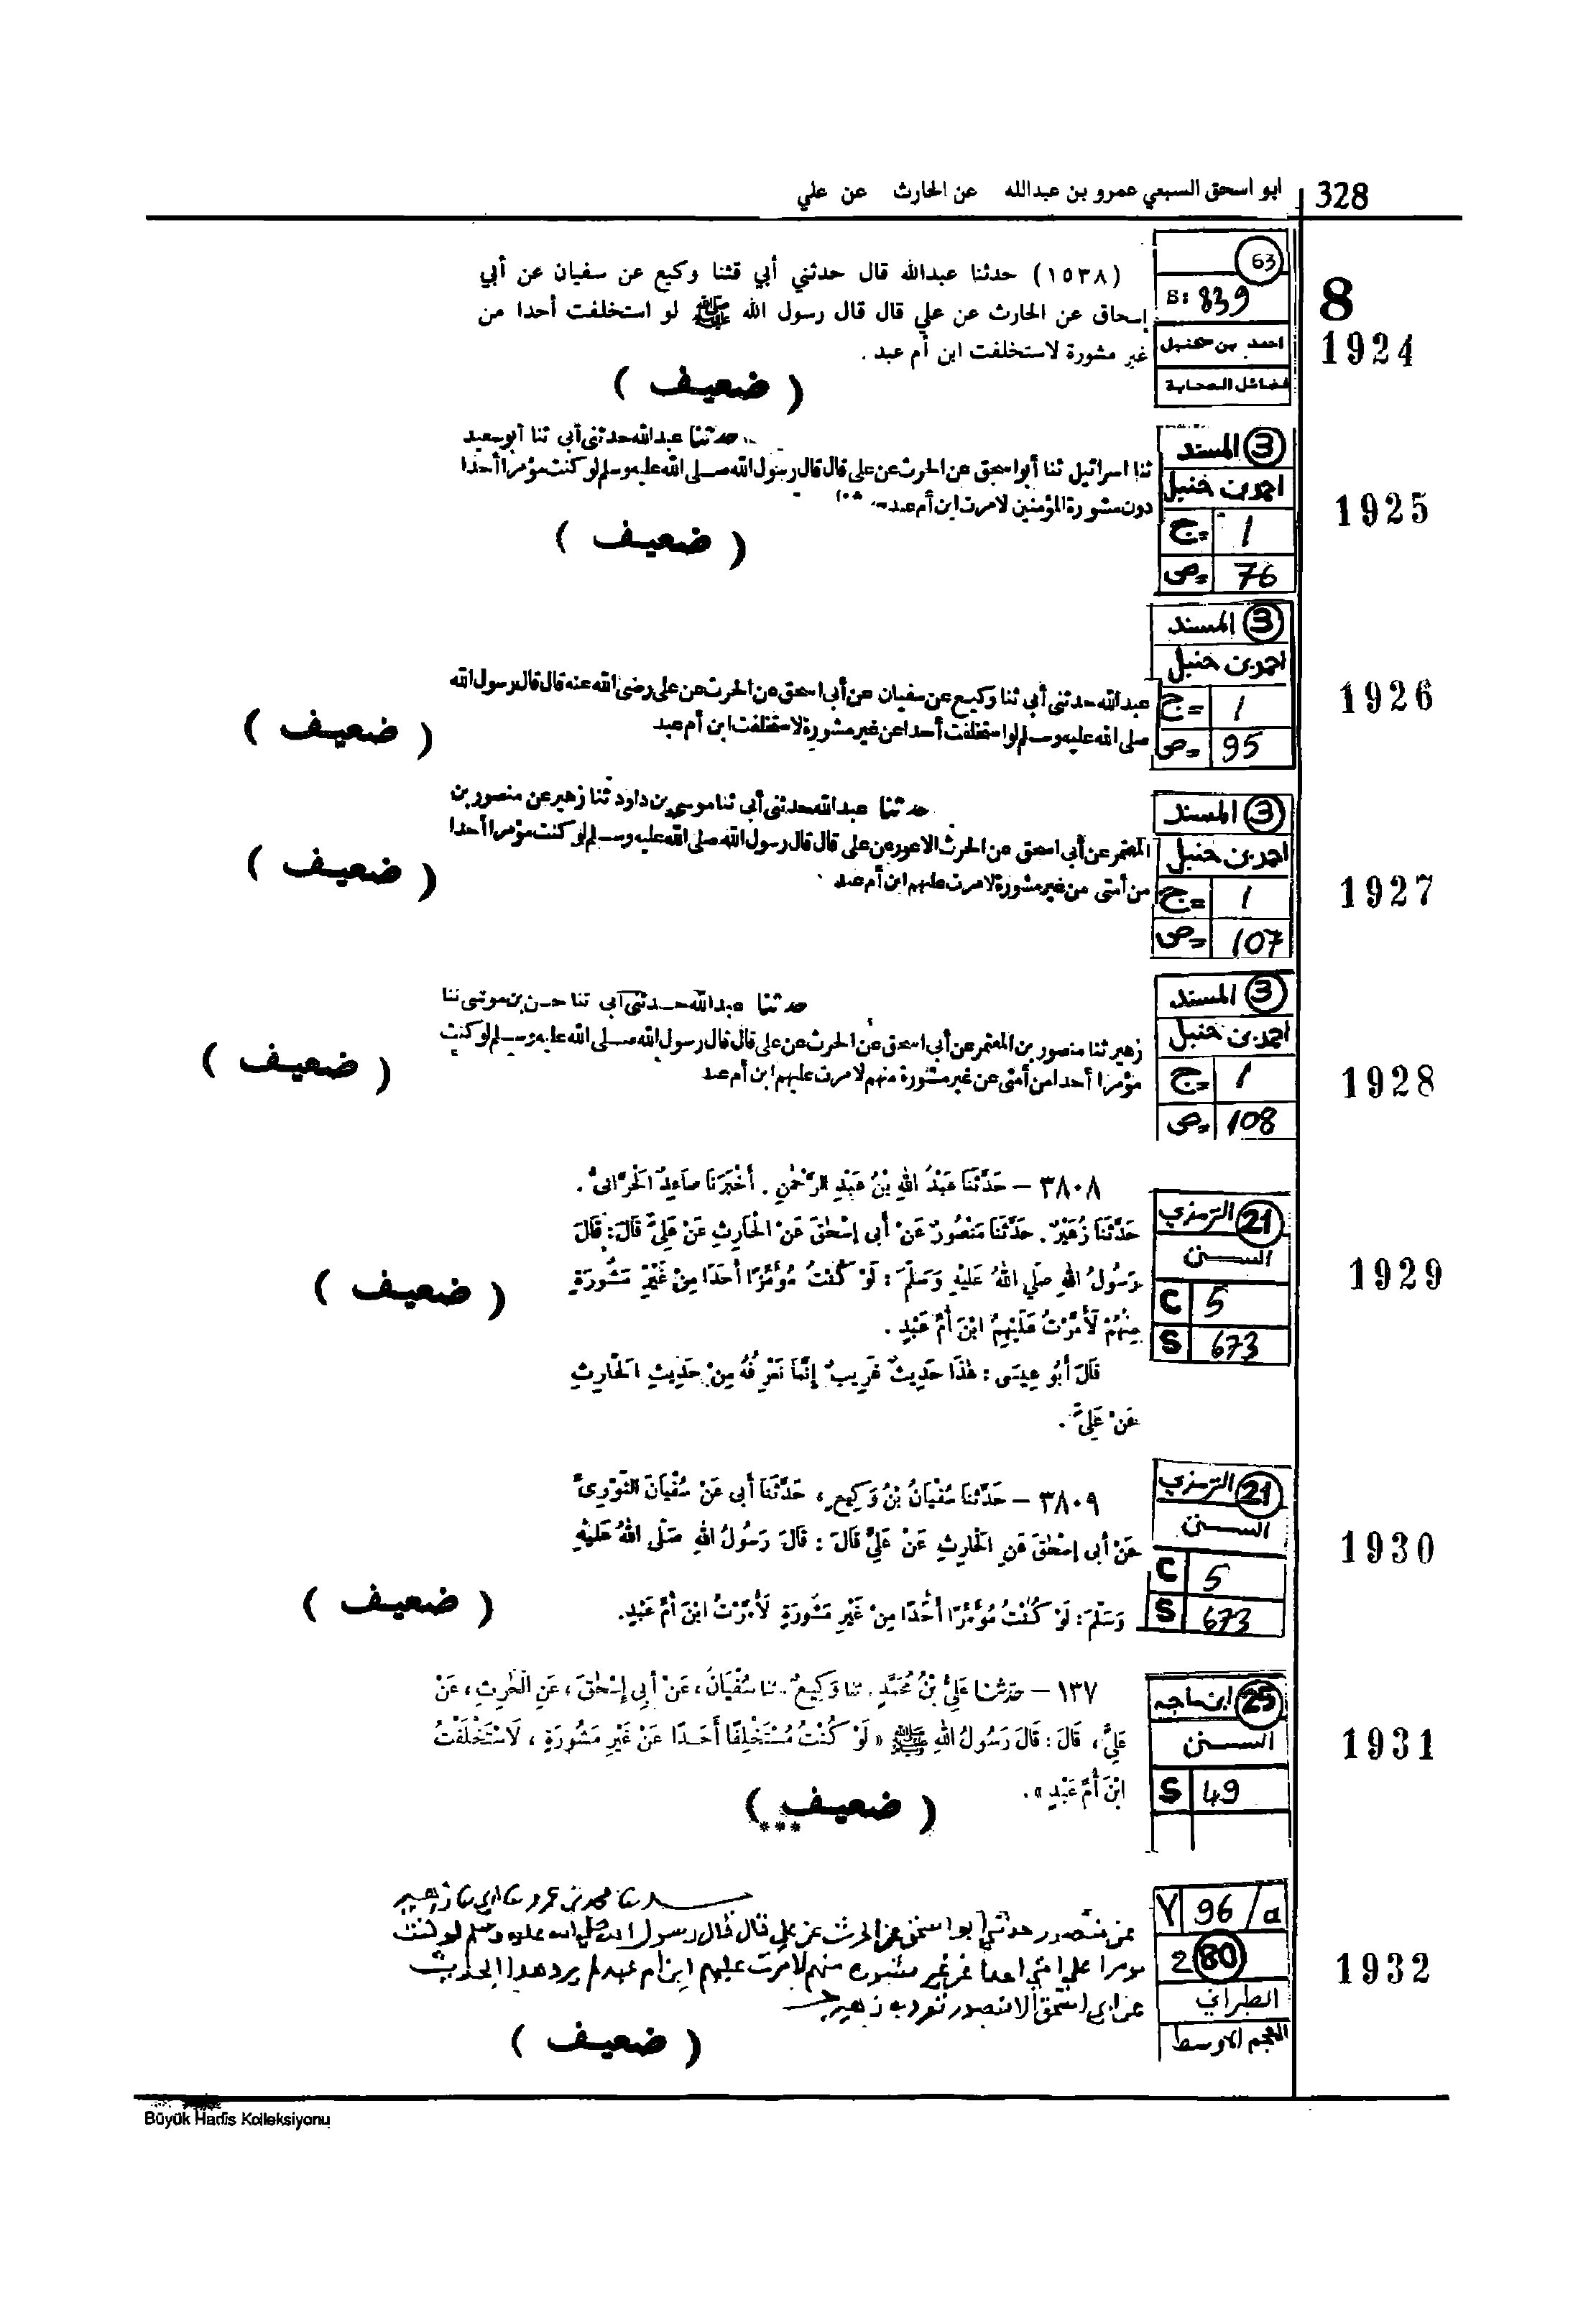 328 ابو اسحق السبعي عمرو بن عبدالله عن الحارث عن علي
8
1924
63
S: 839
احمد بن حنبل
فضائل الصحابة
(١٥٣٨) حدثنا عبدالله قال حدثني أبي قثنا وكيع عن سفيان عن أبي
إسحاق عن الحارث عن علي قال قال رسول الله ﷺ لو استخلفت أحدا من
غير مشورة لاستخلفت ابن أم عبد .
( ضعيف )
1925
3 المسند
احمد بن حنبل
ج= 1
ص= 76
حدثنا عبدالله حدثنى أبى ثنا أبو سعيد
ثنا اسرائيل ثنا أبو اسحق عن الحرث عن على قال قال رسول الله صلى الله عليه وسلم لو كنت مؤمرا أحدا
دون مشورة المؤمنين لامرت ابن أم عبد
( ضعيف )
1926
3 المسند
احمد بن حنبل
ج= 1
ص= 95
عبدالله حدثنى أبى ثنا وكيع عن سفيان عن أبى اسحق عن الحرث عن على رضى الله عنه قال قال رسول الله
صلى الله عليه وسلم لو استخلفت أحدا عن غير مشورة لاستخلفت ابن أم عبد
( ضعيف )
1927
3 المسند
احمد بن حنبل
ج= 1
ص= 107
حدثنا عبدالله حدثنى أبى ثنا موسى بن داود ثنا زهير عن منصور بن
المعتمر عن أبى اسحق عن الحرث الاعور عن على قال قال رسول الله صلى الله عليه وسلم لو كنت مؤمرا أحدا
من أمتى من غير مشورة لامرت عليهم ابن أم عبد
( ضعيف )
1928
3 المسند
احمد بن حنبل
ج= 1
ص= 108
حدثنا عبدالله حدثنى أبى ثنا حسن بن موسى ثنا
زهير ثنا منصور بن المعتمر عن أبى اسحق عن الحرث عن على قال قال رسول الله صلى الله عليه وسلم لو كنت
مؤمرا أحدا من أمتى عن غير مشورة منهم لامرت عليهم ابن أم عبد
( ضعيف )
1929
21 الترمذي
السنن
C 5
S 673
٣٨٠٨ – حَدَّثَنَا عَبْدُ اللهِ بْنُ عَبْدِ الرَّحْمٰنِ . أَخْبَرَنَا صَاعِدٌ الْحَرَّانِىُّ .
حَدَّثَنَا زُهَيْرٌ . حَدَّثَنَا مَنْصُورٌ عَنْ أَبِى إِسْحٰقَ عَنْ الْحَارِثِ عَنْ عَلِىٍّ قَالَ: قَالَ
رَسُولُ اللهِ صلّى اللهُ عَلَيْهِ وَسَلَّمَ : لَوْ كُنْتُ مُؤَمِّرًا أَحَدًا مِنْ غَيْرِ مَشُورَةٍ
مِنْهُمْ لَأَمَّرْتُ عَلَيْهِمُ ابْنَ أُمِّ عَبْدٍ .
قَالَ أَبُو عِيسَى : هٰذَا حَدِيثٌ غَرِيبٌ إِنَّمَا نَعْرِفُهُ مِنْ حَدِيثِ الْحَارِثِ
عَنْ عَلِىٍّ .
( ضعيف )
1930
21 الترمذي
السنن
C 5
S 673
٣٨٠٩ – حَدَّثَنَا سُفْيَانُ بْنُ وَكِيعٍ ، حَدَّثَنَا أَبِى عَنْ سُفْيَانَ الثَّوْرِىِّ
عَنْ أَبِى إِسْحٰقَ عَنِ الْحَارِثِ عَنْ عَلِىٍّ قَالَ : قَالَ رَسُولُ اللهِ صَلّى اللهُ عَلَيْهِ
وَسَلَّمَ : لَوْ كُنْتُ مُؤَمِّرًا أَحَدًا مِنْ غَيْرِ مَشُورَةٍ لَأَمَّرْتُ ابْنَ أُمِّ عَبْدٍ.
( ضعيف )
1931
25 ابن ماجه
السنن
S 49
١٣٧ – حَدَّثَنَا عَلِىُّ بْنُ مُحَمَّدٍ . ثنا وَكِيعٌ . ثنا سُفْيَانُ ، عَنْ أَبِى إِسْحٰقَ ، عَنِ الْحَرِثِ ، عَنْ
عَلِىٍّ ، قَالَ : قَالَ رَسُولُ اللهِ ﷺ « لَوْ كُنْتُ مُسْتَخْلِفًا أَحَدًا عَنْ غَيْرِ مَشُورَةٍ ، لَاسْتَخْلَفْتُ
ابْنَ أُمِّ عَبْدٍ » .
( ضعيف )
***
1932
Y 96/a
2 80
الطبراني
المعجم الاوسط
حدثنا محمد بن عمرو ثنا ابي ثنا زهير
عن منصور حدثني ابو اسحق عن الحرث عن علي قال قال رسول الله صلى الله عليه وسلم لو كنت
مومرا علي امتي احدا عن غير مشوره منهم لامرت عليهم ابن ام عبد لم يرو هذا الحديث
عن ابي اسحق الا منصور تفرد به زهير
( ضعيف )
Büyük Hadis Kolleksiyonu